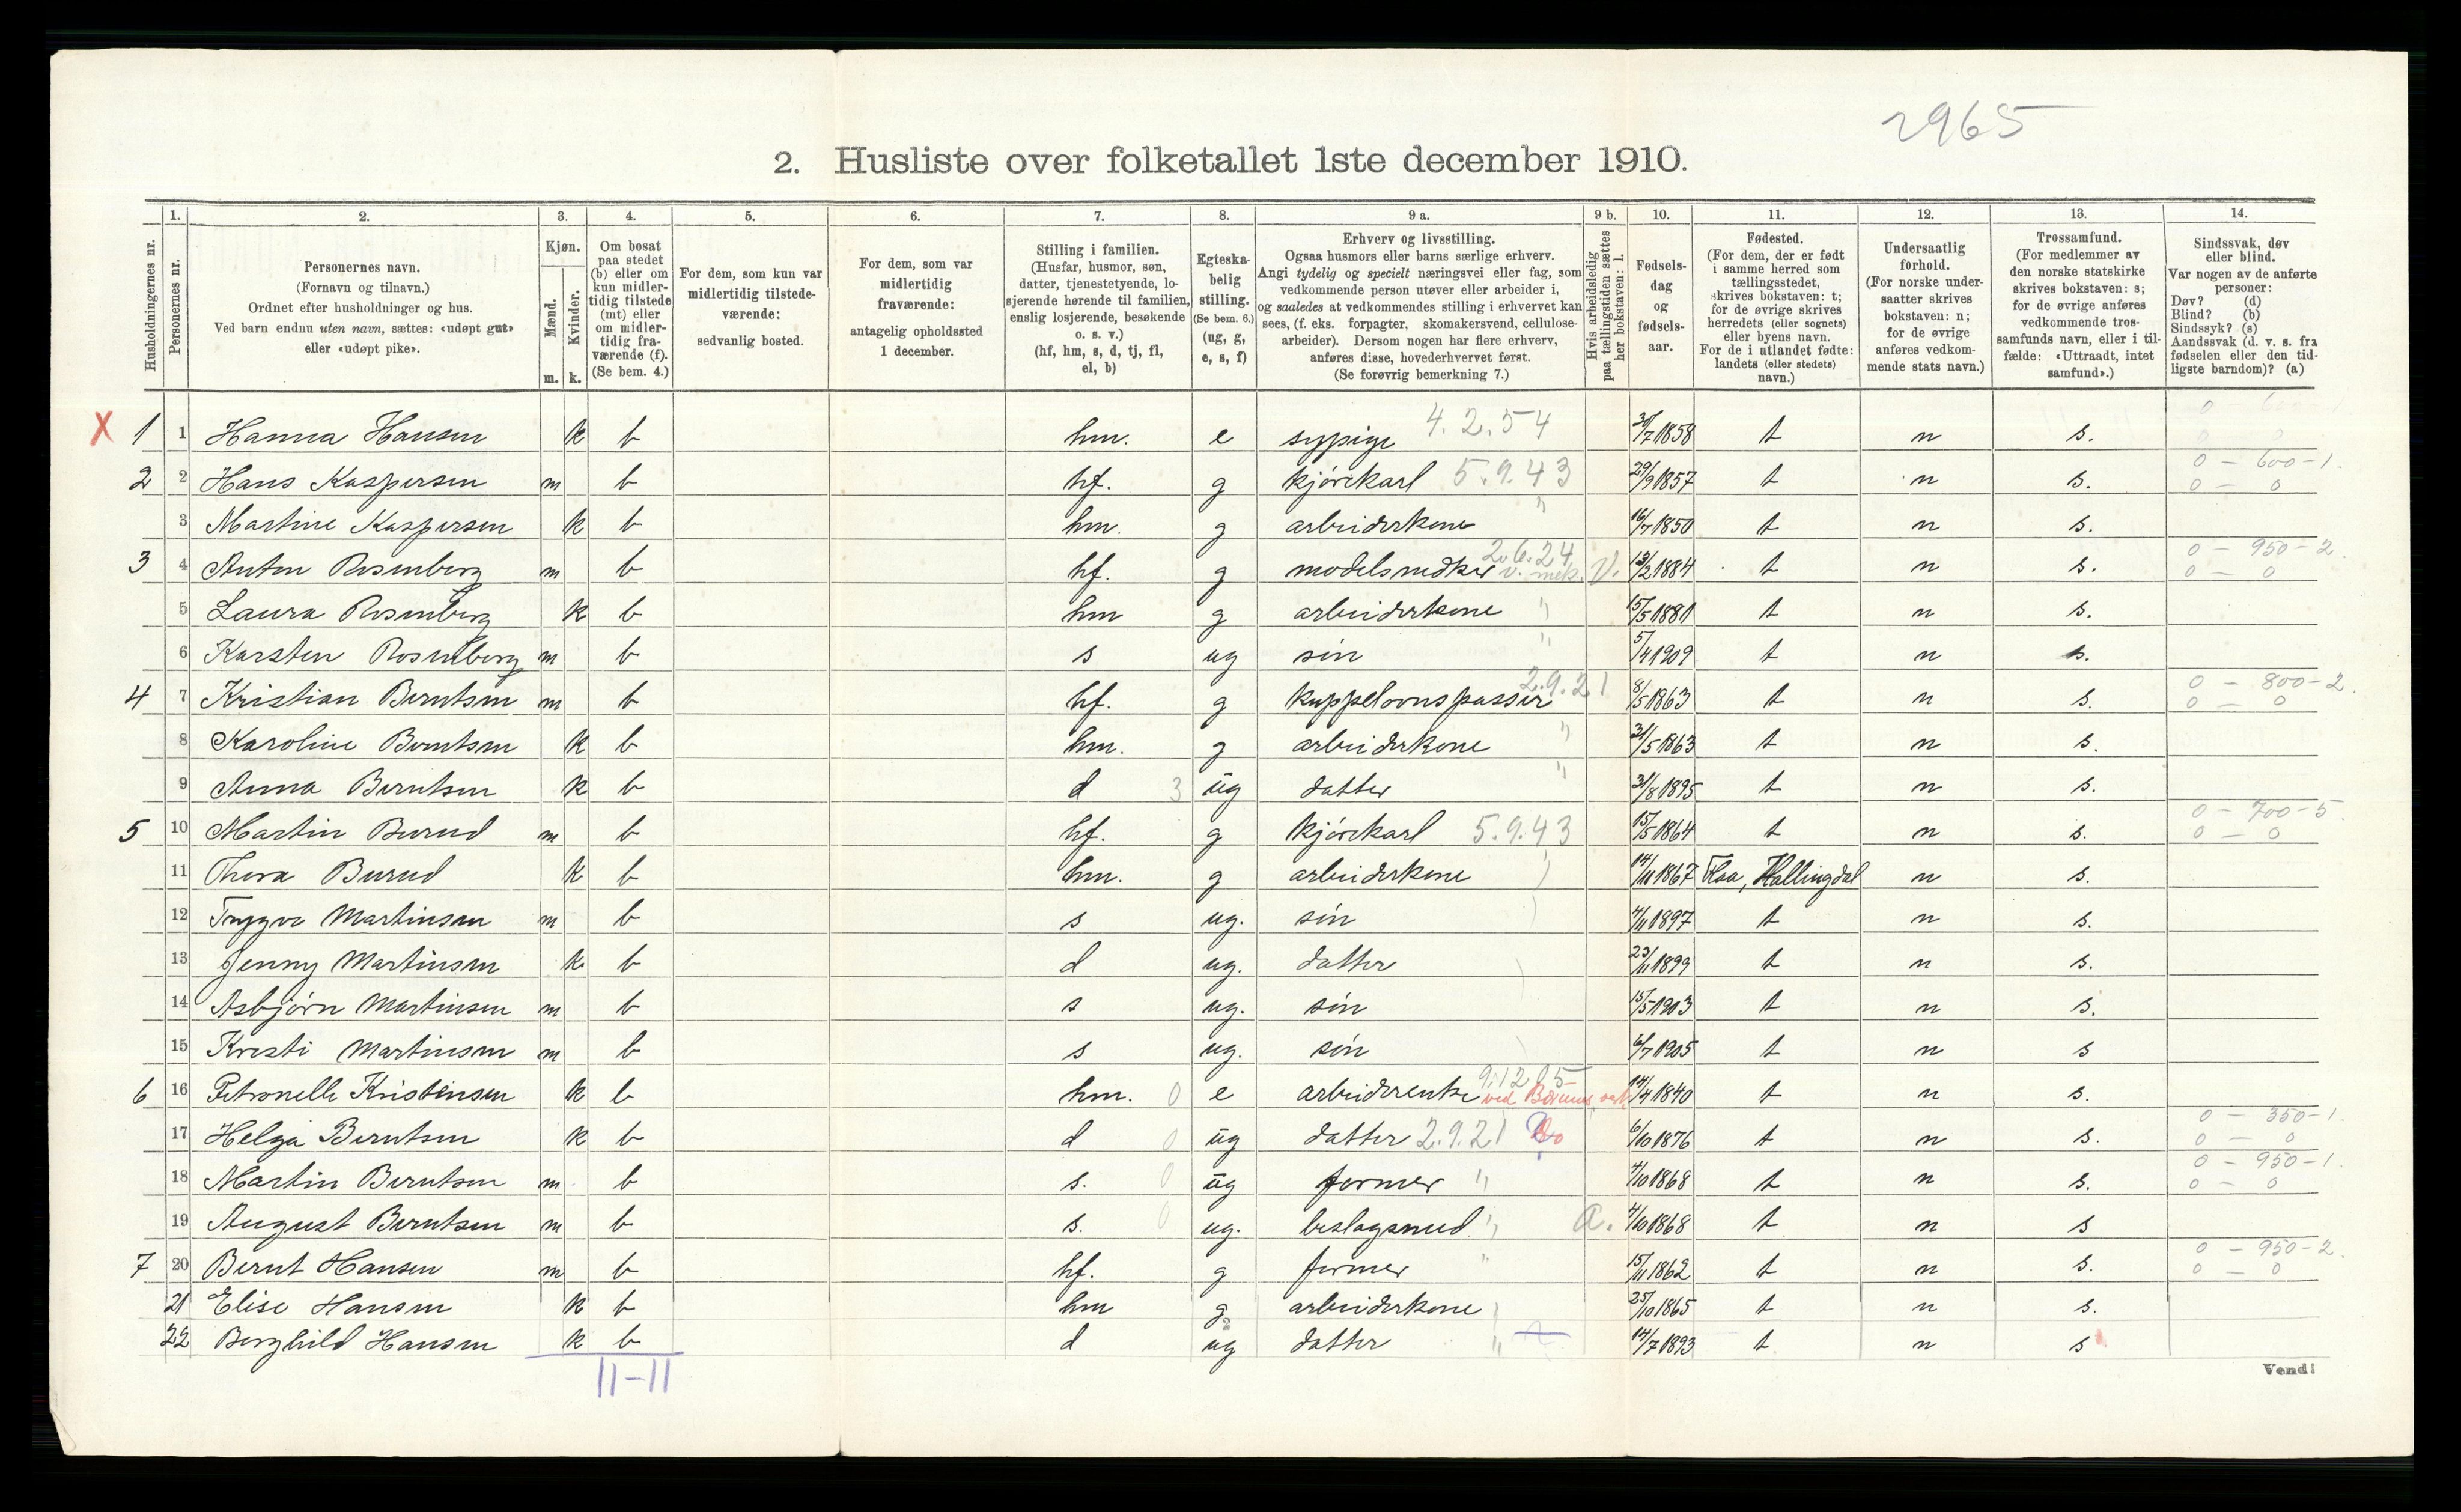 2965
2. Husliste over folketallet 1ste december 1910.
Husholdningernes nr.
1. Personernes nr.
2. Personernes navn. (Fornavn og tilnavn.) Ordnet efter husholdninger og hus. Ved barn endnu uten navn, sættes: «udøpt gut» eller «udøpt pike».
3. Kjøn. Mænd. m. Kvinder. k.
4. Om bosat paa stedet (b) eller om kun midlertidig tilstede (mt) eller om midlertidig fraværende (f). (Se bem. 4.)
5. For dem, som kun var midlertidig tilstedeværende: sedvanlig bosted.
6. For dem, som var midlertidig fraværende: antagelig opholdssted 1 december.
7. Stilling i familien. (Husfar, husmor, søn, datter, tjenestetyende, losjerende hørende til familien, enslig losjerende, besøkende o. s. v.) (hf, hm, s, d, tj, fl, el, b)
8. Egteskabelig stilling. (Se bem. 6.) (ug, g, e, s, f)
9 a. Erhverv og livsstilling. Ogsaa husmors eller barns særlige erhverv. Angi tydelig og specielt næringsvei eller fag, som vedkommende person utøver eller arbeider i, og saaledes at vedkommendes stilling i erhvervet kan sees, (f. eks. forpagter, skomakersvend, cellulosearbeider). Dersom nogen har flere erhverv, anføres disse, hovederhvervet først. (Se forøvrig bemerkning 7.)
9 b. Hvis arbeidsledig paa tællingstiden sættes her bokstaven: l.
10. Fødselsdag og fødselsaar.
11. Fødested. (For dem, der er født i samme herred som tællingsstedet, skrives bokstaven: t; for de øvrige skrives herredets (eller sognets) eller byens navn. For de i utlandet fødte: landets (eller stedets) navn.)
12. Undersaatlig forhold. (For norske undersaatter skrives bokstaven: n; for de øvrige anføres vedkommende stats navn.)
13. Trossamfund. (For medlemmer av den norske statskirke skrives bokstaven: s; for de øvrige anføres vedkommende trossamfunds navn, eller i tilfælde: «Uttraadt, intet samfund».)
14. Sindssvak, døv eller blind. Var nogen av de anførte personer: Døv? (d) Blind? (b) Sindssyk? (s) Aandssvak (d. v. s. fra fødselen eller den tidligste barndom)? (a)
X 1 1 Hanna Hansen k b hm. e sypige 4.2.54 30/7 1858 t n s.
2 2 Hans Kaspersen m b hf. g kjørekarl 5.9.43 29/9 1857 t n s. 0 - 600 - 1. 0 - 0
3 Martine Kaspersen k b hm. g arbeiderkone " 16/7 1850 t n s.
3 4 Anton Rosenberg m b hf. g modelsnedker 2.6.24 v. mek. V. 13/2 1884 t n s. 0 - 950 - 2. 0 - 0
5 Laura Rosenberg k b hm g arbeiderkone " 15/5 1881 t n s.
6 Karsten Rosenberg m b s ug søn " 5/4 1909 t n s.
4 7 Kristian Berntsen m b hf. g kuppelovnspasser 2.9.21 8/5 1863 t n s. 0 - 800 - 2. 0 - 0
8 Karoline Berntsen k b hm. g arbeiderkone " 21/5 1863 t n s.
9 Anna Berntsen k b d 3 ug datter " 31/8 1895 t n s.
5 10 Martin Burud m b hf. g kjørekarl 5.9.43 15/5 1864 t n s. 0 - 700 - 5. 0 - 0
11 Thora Burud k b hm. g arbeiderkone 14/11 1867 Flaa, Hallingdal n s.
12 Trygve Martinsen m b s ug. søn 4/11 1897 t n s.
13 Jenny Martinsen k b d ug. datter 23/11 1899 t n s.
14 Asbjørn Martinsen m b s ug. søn 15/5 1903 t n s.
15 Kresti Martinsen m b s ug. søn 6/7 1905 t n s
6 16 Petronelle Kristensen k b hm. 0 e arbeiderenke ved Bærums verk 14/4 1840 t n s.
17 Helga Berntsen k b d 0 ug datter 2.9.21 6/10 1876 t n s. 0 - 350 - 1. 0 - 0
18 Martin Berntsen m b s. 0 ug former " 4/10 1868 t n s. 0 - 950 - 1. 0 - 0
19 August Berntsen m b s. 0 ug. beslagsmed " a. 4/10 1868 t n s
7 20 Bernt Hansen m b hf. g former " 15/11 1862 t n s. 0 - 950 - 2. 0 - 0
21 Elise Hansen k b hm g arbeiderkone 25/10 1865 t n s.
22 Borghild Hansen k b d ug datter " 14/7 1893 t n s
11-11
Vend!